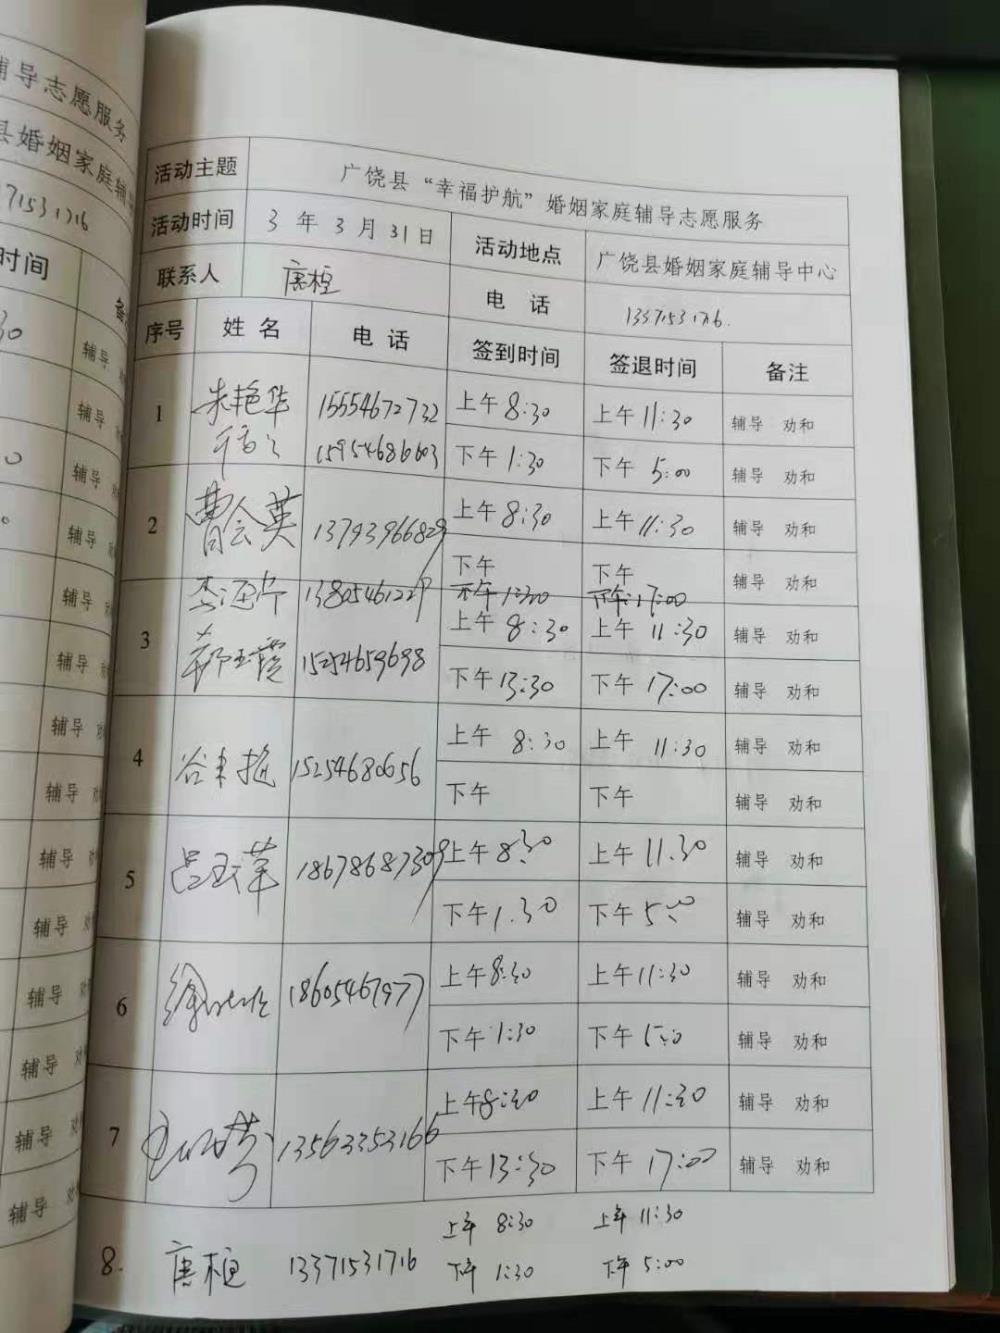 辅导志愿服务
县婚姻家庭辅导
71531716
时间
备注
30
辅导 劝
辅导 劝
辅导 劝
辅导
辅导
辅导
辅导 劝
辅导 劝
辅导 劝
辅导 劝
辅导 劝
辅导 劝
辅导 劝
辅导 劝
活动主题 广饶县“幸福护航”婚姻家庭辅导志愿服务
活动时间 3 年 3 月 31 日 活动地点 广饶县婚姻家庭辅导中心
联系人 唐桓 电 话 13371531716.
序号 姓 名 电 话 签到时间 签退时间 备注
1 朱艳华 15554672732 上午 8:30 上午 11:30 辅导 劝和
15954686603 下午 1:30 下午 5:00 辅导 劝和
2 曹会英 13793966829 上午 8:30 上午 11:30 辅导 劝和
下午 下午 辅导 劝和
13805461229 下午 1:30 下午 17:00
3 上午 8:30 上午 11:30 辅导 劝和
15254659698 下午 13:30 下午 17:00 辅导 劝和
4 15254680656 上午 8:30 上午 11:30 辅导 劝和
下午 下午 辅导 劝和
5 吕玉苹 18678687309 上午 8:30 上午 11.30 辅导 劝和
下午 1.30 下午 5:00 辅导 劝和
6 18605467977 上午 8:30 上午 11:30 辅导 劝和
下午 1:30 下午 5:00 辅导 劝和
7 13563353166 上午 8:30 上午 11:30 辅导 劝和
下午 13:30 下午 17:00 辅导 劝和
8. 唐桓 13371531716 上午 8:30 上午 11:30
下午 1:30 下午 5:00